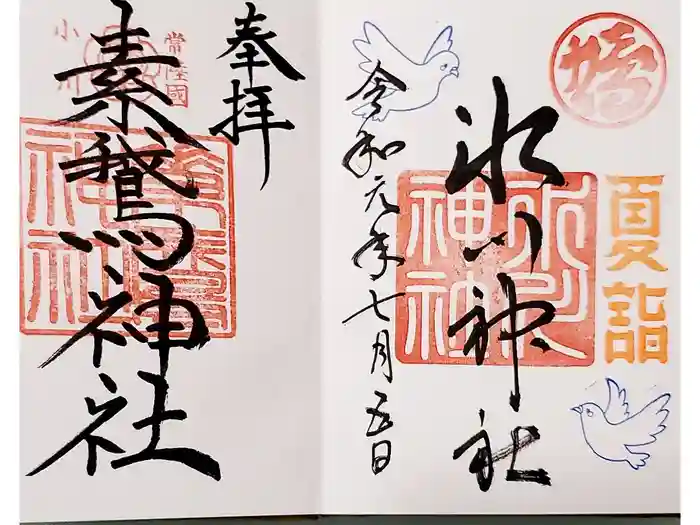 夏詣
氷川神社
氷川神社
令和元年七月五日
奉拝
常陸國
小川
素鵞神社